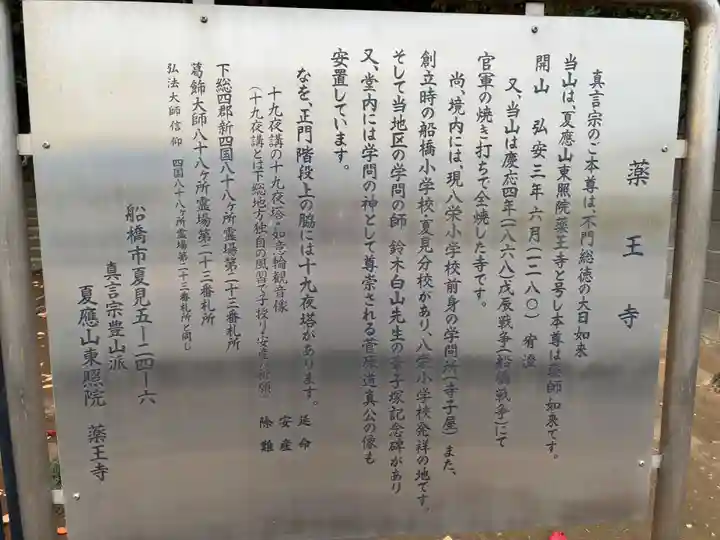 薬王寺
真言宗のご本尊は、不門総徳の大日如来
当山は、夏應山東照院薬王寺と号し本尊は薬師如来です。
開山 弘安三年六月(一二八〇) 宥澄
又、当山は慶応四年(一八六八)戊辰戦争(船橋戦争)にて
官軍の焼き打ちで全焼した寺です。
尚、境内には、現八栄小学校前身の学問所(寺子屋)また、
創立時の船橋小学校・夏見分校があり、八栄小学校発祥の地です。
そして当地区の学問の師 鈴木白山先生の筆子塚記念碑があり
又、堂内には学問の神として尊崇される菅原道真公の像も
安置しています。
なを、正門階段上の脇には十九夜塔があります。
十九夜講の十九夜塔・如意輪観音像
(十九夜講とは下総地方独自の風習で子授け・安産の祈願)
延命
安産
除難
下総四郡新四国八十八ヶ所霊場第二十三番札所
葛飾大師八十八ヶ所霊場第二十三番札所
弘法大師信仰 四国八十八ヶ所霊場第二十三番札所と同じ
船橋市夏見五ー二四ー六
真言宗豊山派
夏應山東照院 薬王寺